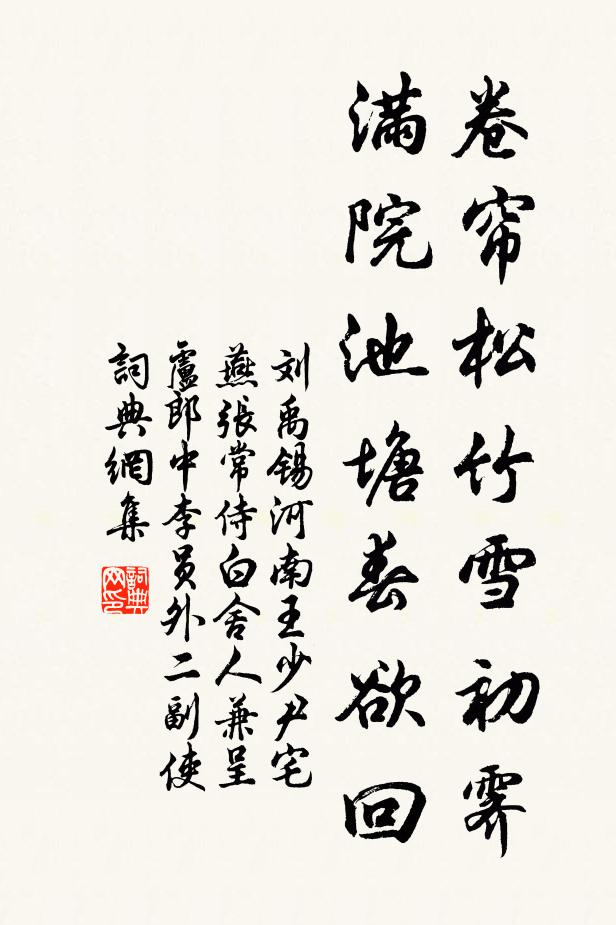 卷帘松竹雪初霁
满院池塘春欲回
刘禹锡河南王少尹宅
燕張常侍白舍人兼呈
盧郎中李員外二副使
詞典網集
詞典
网印